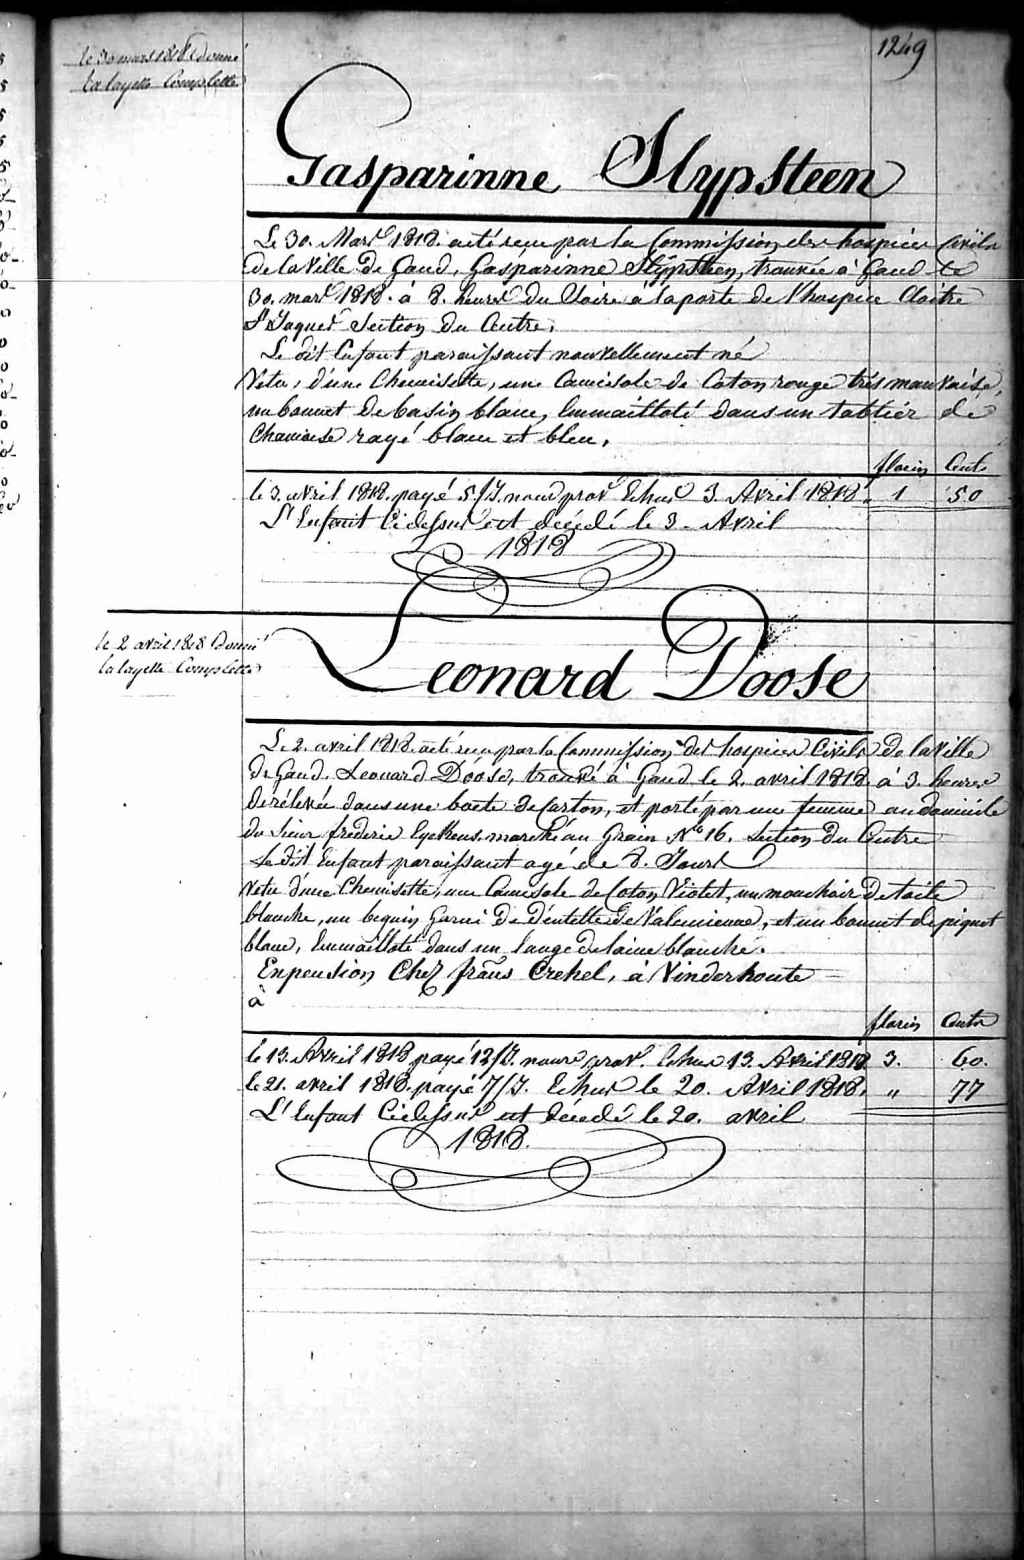 1249
le 30 mars 1818 Donné
la layette Complette
Gasparinne Slypsteen
Le 30. Mars 1818. a été reçu par la Commission des hospices Civils
de la Ville de Gand, Gasparinne Slypsteen, trouvée à Gand le
30. mars 1818. à 8. heures du Soire à la porte de l'hospice Cloitre
St Jaques Section du Centre.
Le dit Enfant paraissant nouvellement né
Vetu, d'une Chemisette, une Camisole de Coton rouge très mauvaise,
un bonnet de basin blanc, Emmailloté dans un tablier de
Chamoise rayé blanc et bleu.
florins Cents
le 3. avril 1818. payé 5/J. nour prov. Echus 3. Avril 1818. 1 50
L'Enfant Cidessus est décédé le 3. Avril
1818
le 2 avril 1818 Donné
la layette Complette
Leonard Doose
Le 2. avril 1818. a été reçu par la Commission des hospices Civils de la Ville
de Gand. Leonard Döose, trouvé à Gand le 2. avril 1818. à 3. heures
de rélevée dans une boete de Carton, et porté par une femme au domicile
du Sieur frederic Eyckens marché au Grain No 16. Section du Centre
Le dit Enfant paraissant agé de 8. Jours
Vetu d'une Chemisette, une Camisole de Coton Violet, un mouchoir de toile
blanche, un beguin Garni de Dentelle de Valencienne, et un bonnet de piquet
blanc, Emmailloté dans un lange de laine blanche.
En pension Chez frans Crekel, à Vinderhoute
à
florins Cents
le 13. Avril 1818 payé 12/J. nour prov. Echus 13. Avril 1818 3. 60.
le 21. avril 1818. payé 7/J. Echus le 20. Avril 1818. " 77
L'Enfant Cidessus est décédé le 20. avril
1818.